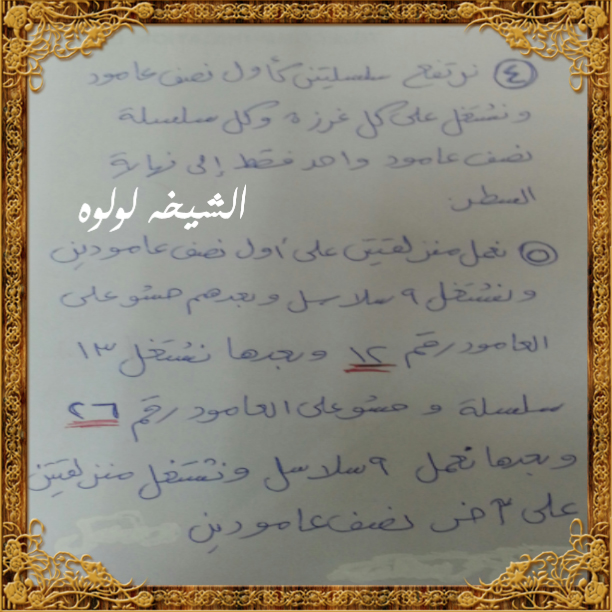 ٤ نرتفع سلسلتين كأول نصف عامود
ونشتغل على كل غرزة وكل سلسلة
نصف عامود واحد فقط إلى نهاية
السطر
الشيخه لولوه
٥ نعمل منزلقتين على أول نصف عامودين
ونشتغل ٩ سلاسل وبعدهم حشو على
العامود رقم ١٢ وبعدها نشتغل ١٣
سلسلة وحشو على العامود رقم ٢٦
وبعدها نعمل ٩ سلاسل ونشتغل منزلقتين
على آخر نصف عامودين